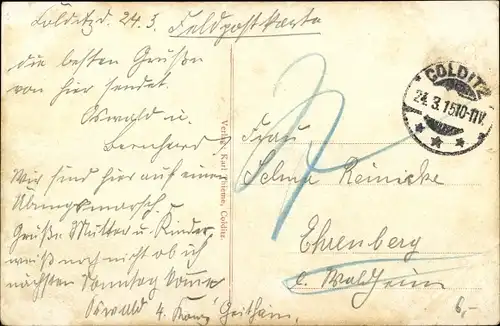 Colditz d. 24.3. Feldpostkarte
die besten Grüße
von hier sendet
Oswald u.
Bernhard
Wir sind hier auf einem
Übungsmarsch.
Grüße Mutter u. Kinder
weiß noch nicht ob ich
nächsten Sonntag komme
Oswald 4. Komp. Geithain.
Verlag: Karl Thieme, Colditz.
COLDITZ
24.3.15 10-11V.
Frau
Selma Reinicke
Ehrenberg
b. Waldheim
6,-